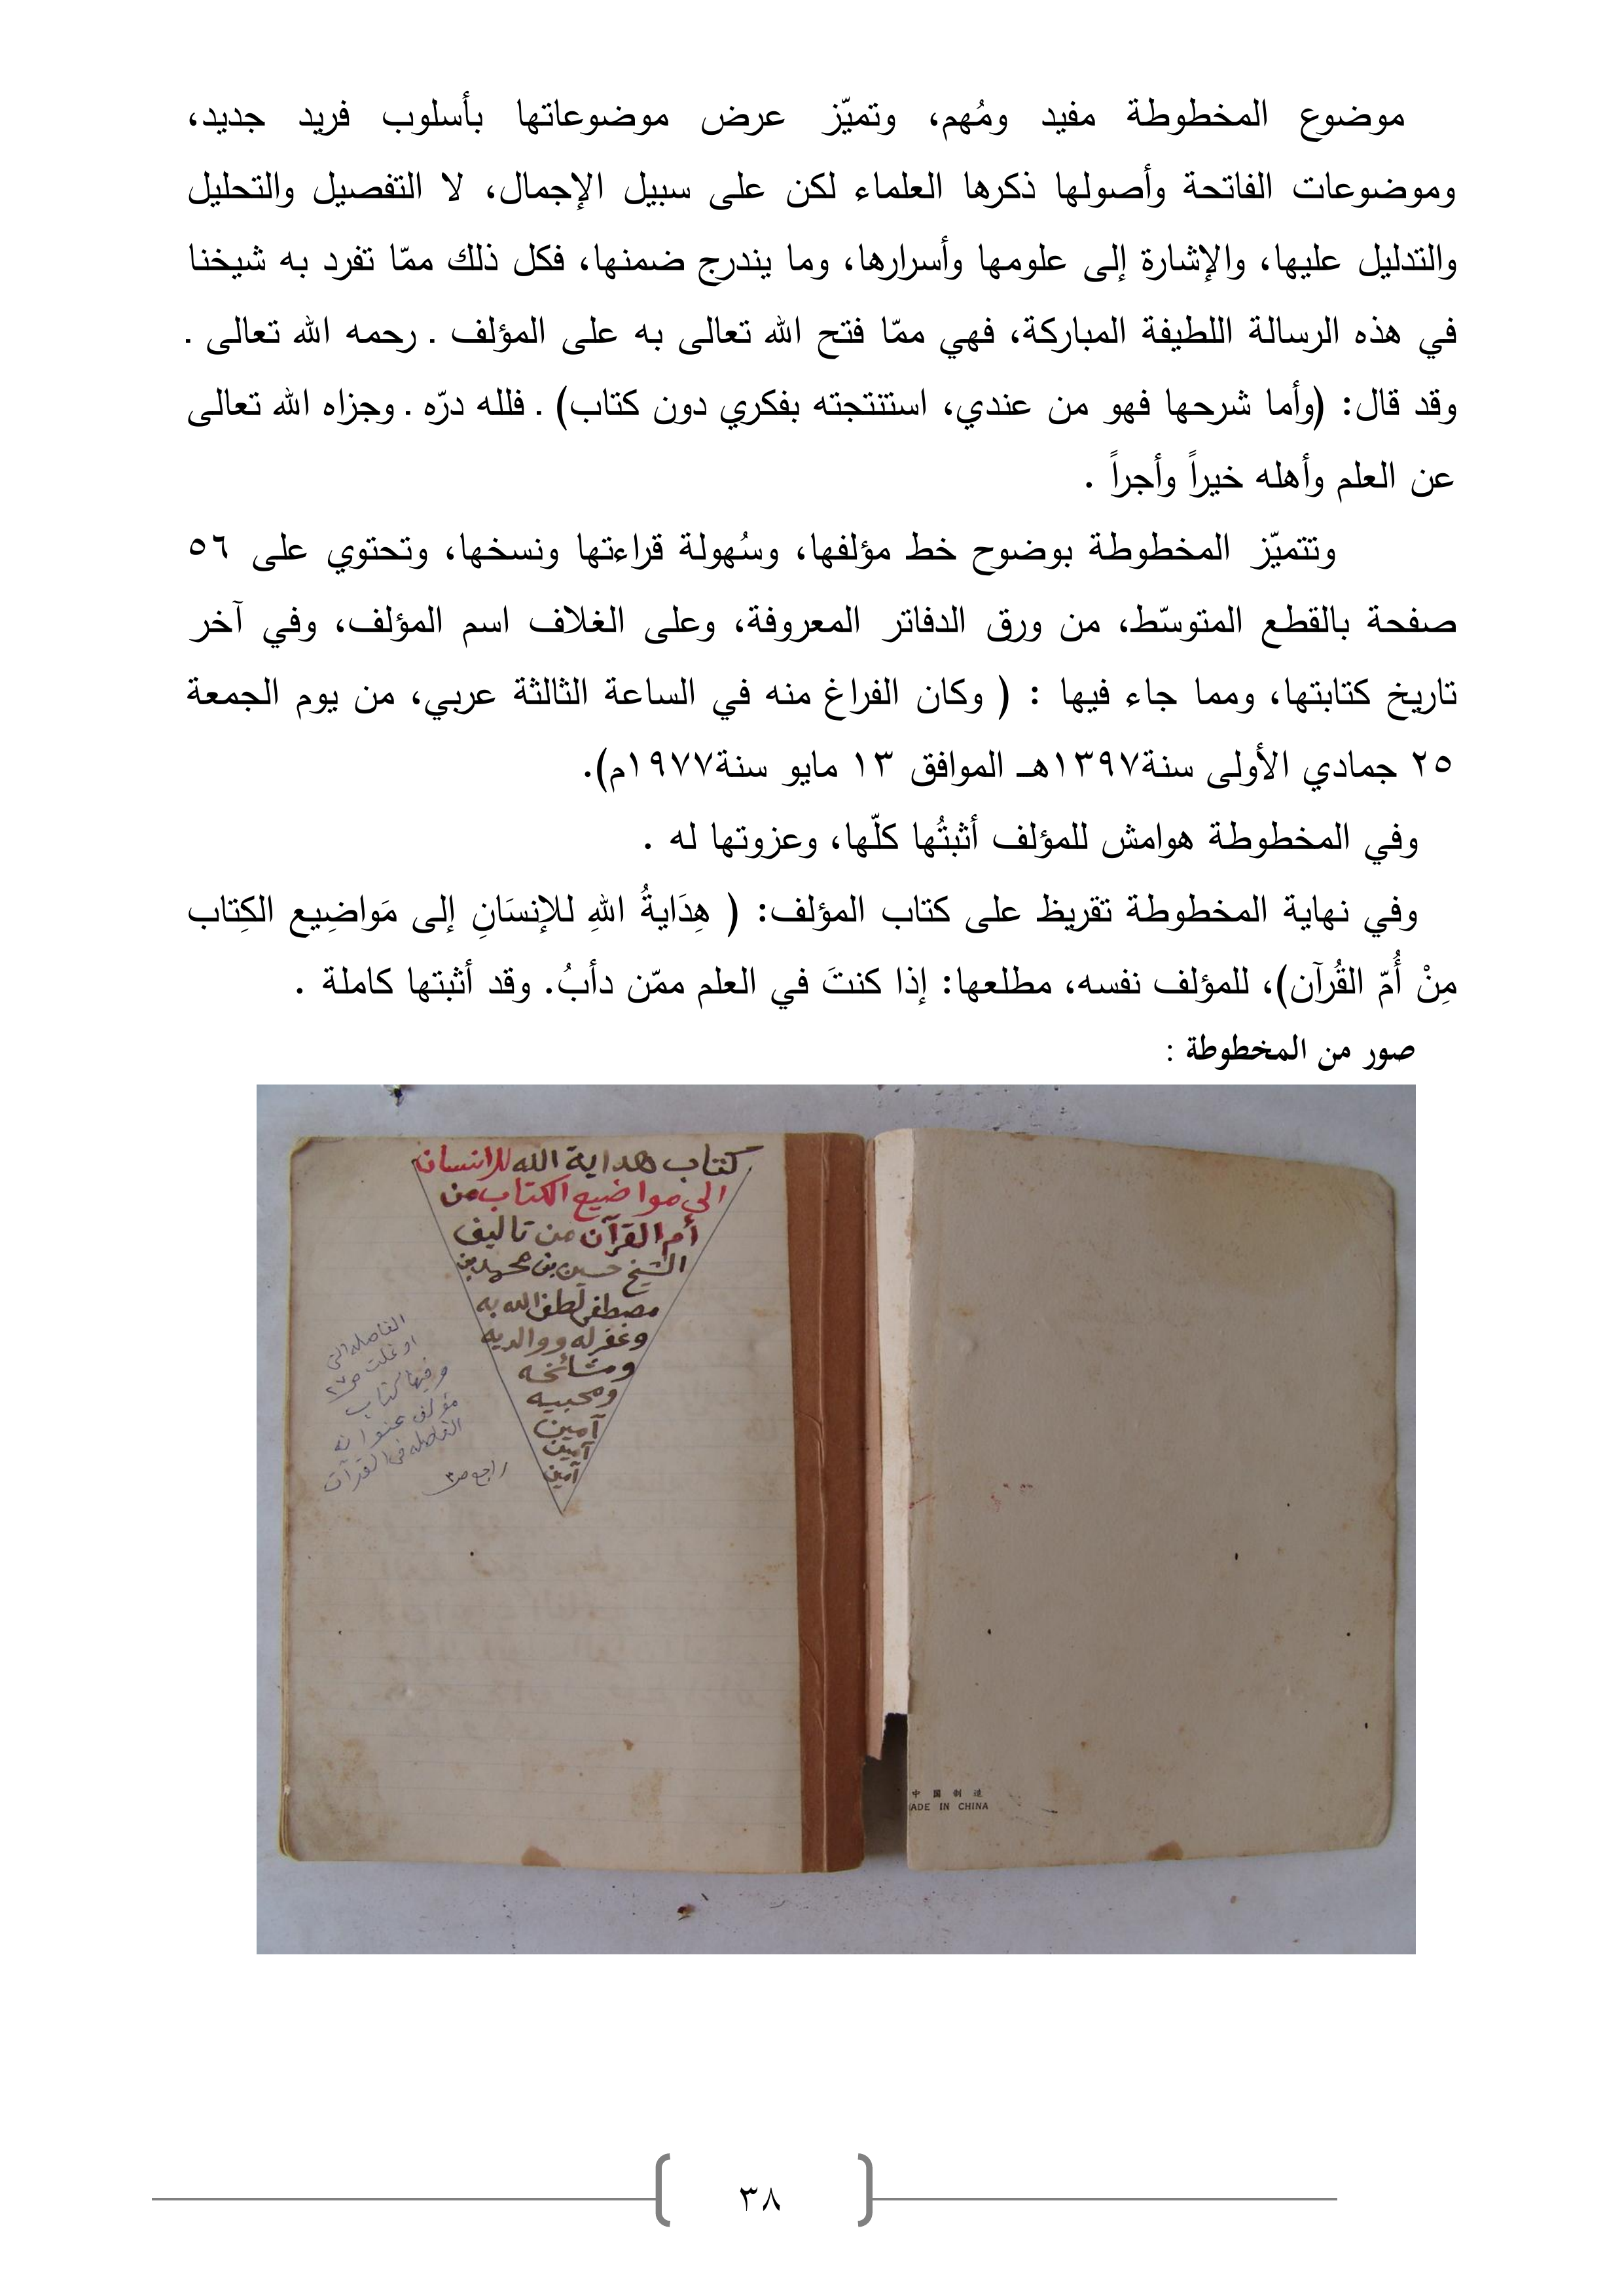 موضوع المخطوطة مفيد ومُهم، وتميّز عرض موضوعاتها بأسلوب فريد جديد،
وموضوعات الفاتحة وأصولها ذكرها العلماء لكن على سبيل الإجمال، لا التفصيل والتحليل
والتدليل عليها، والإشارة إلى علومها وأسرارها، وما يندرج ضمنها، فكل ذلك ممّا تفرد به شيخنا
في هذه الرسالة اللطيفة المباركة، فهي ممّا فتح الله تعالى به على المؤلف . رحمه الله تعالى .
وقد قال: (وأما شرحها فهو من عندي، استنتجته بفكري دون كتاب) . فلله درّه . وجزاه الله تعالى
عن العلم وأهله خيراً وأجراً .
وتتميّز المخطوطة بوضوح خط مؤلفها، وسُهولة قراءتها ونسخها، وتحتوي على ٥٦
صفحة بالقطع المتوسّط، من ورق الدفاتر المعروفة، وعلى الغلاف اسم المؤلف، وفي آخر
تاريخ كتابتها، ومما جاء فيها : ( وكان الفراغ منه في الساعة الثالثة عربي، من يوم الجمعة
٢٥ جمادي الأولى سنة١٣٩٧هـ الموافق ١٣ مايو سنة١٩٧٧م).
وفي المخطوطة هوامش للمؤلف أثبتُها كلّها، وعزوتها له .
وفي نهاية المخطوطة تقريظ على كتاب المؤلف: ( هِدَايةُ اللهِ للإنسَانِ إلى مَواضِيع الكِتاب
مِنْ أُمّ القُرآن)، للمؤلف نفسه، مطلعها: إذا كنتَ في العلم ممّن دأبُ. وقد أثبتها كاملة .
صور من المخطوطة :
كتاب هداية الله للانسان
الى مواضيع الكتاب من
أم القرآن من تاليف
الشيخ حسين بن محمد بن
مصطفى لطف الله به
وغفر له ووالديه
ومشائخه
ومحبيه
آمين
آمين
آمين
الفاصله التى
وفيها كتاب
مؤلف عنوانه
الفاصله فى القرآن
راجع ص٣
中国制造
ADE IN CHINA
٣٨